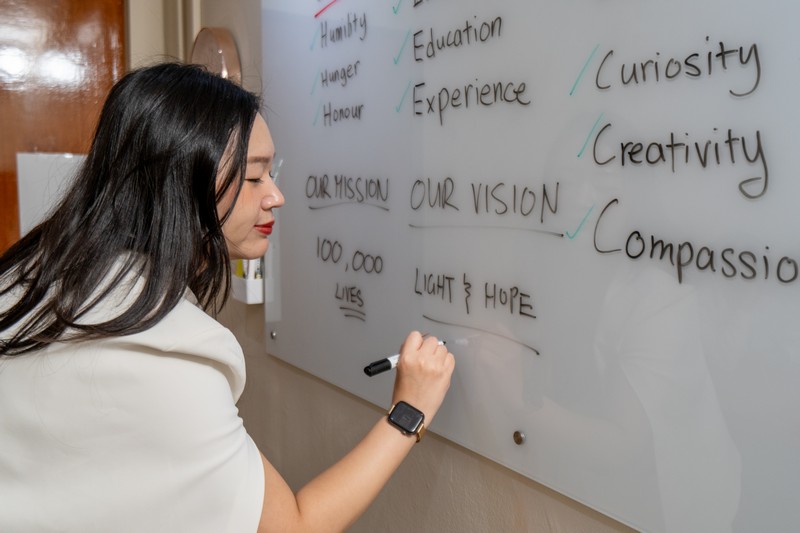 Humility
Hunger
Honour
Education
Experience
Curiosity
Creativity
Compassio
OUR MISSION
100,000
LIVES
OUR VISION
LIGHT & HOPE